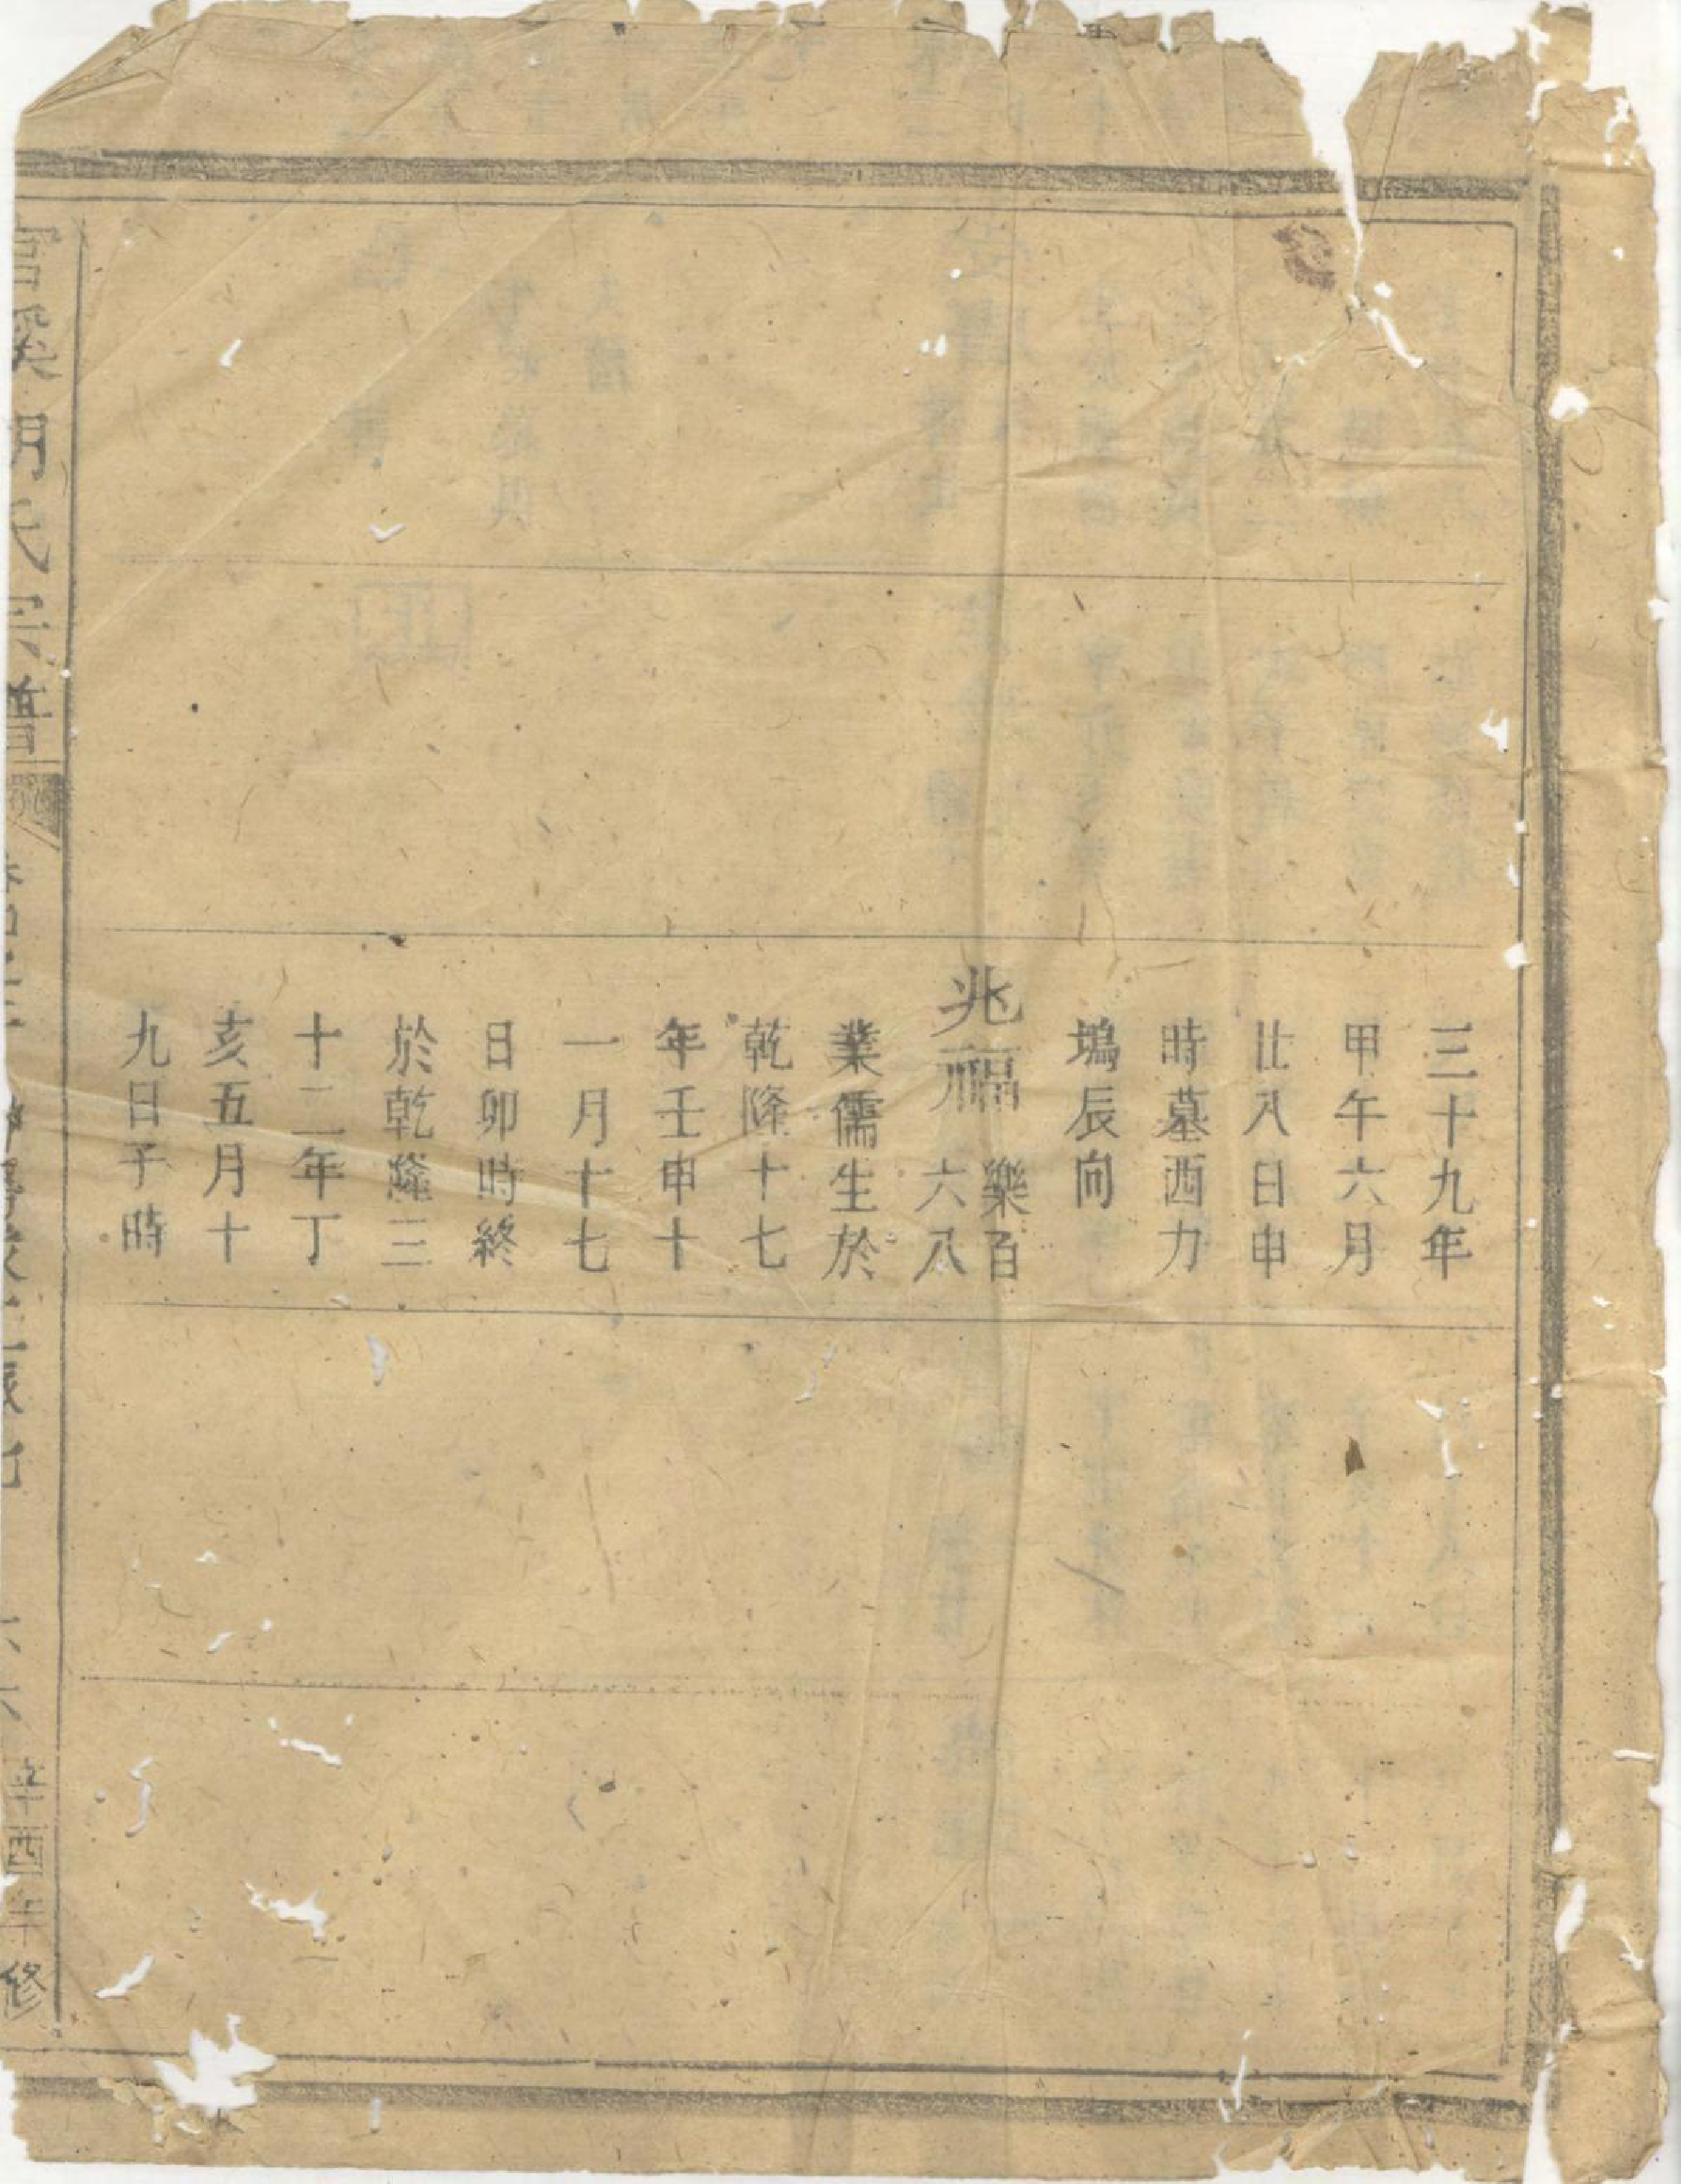 三十九年
甲午六月
廿八日申
時墓西力
塢辰向
兆福 樂百六八
業儒生於
乾隆十七
年壬申十
一月十七
日卯時終
於乾隆三
十二年丁
亥五月十
九日子時
溪胡氏宗譜
辛酉年修